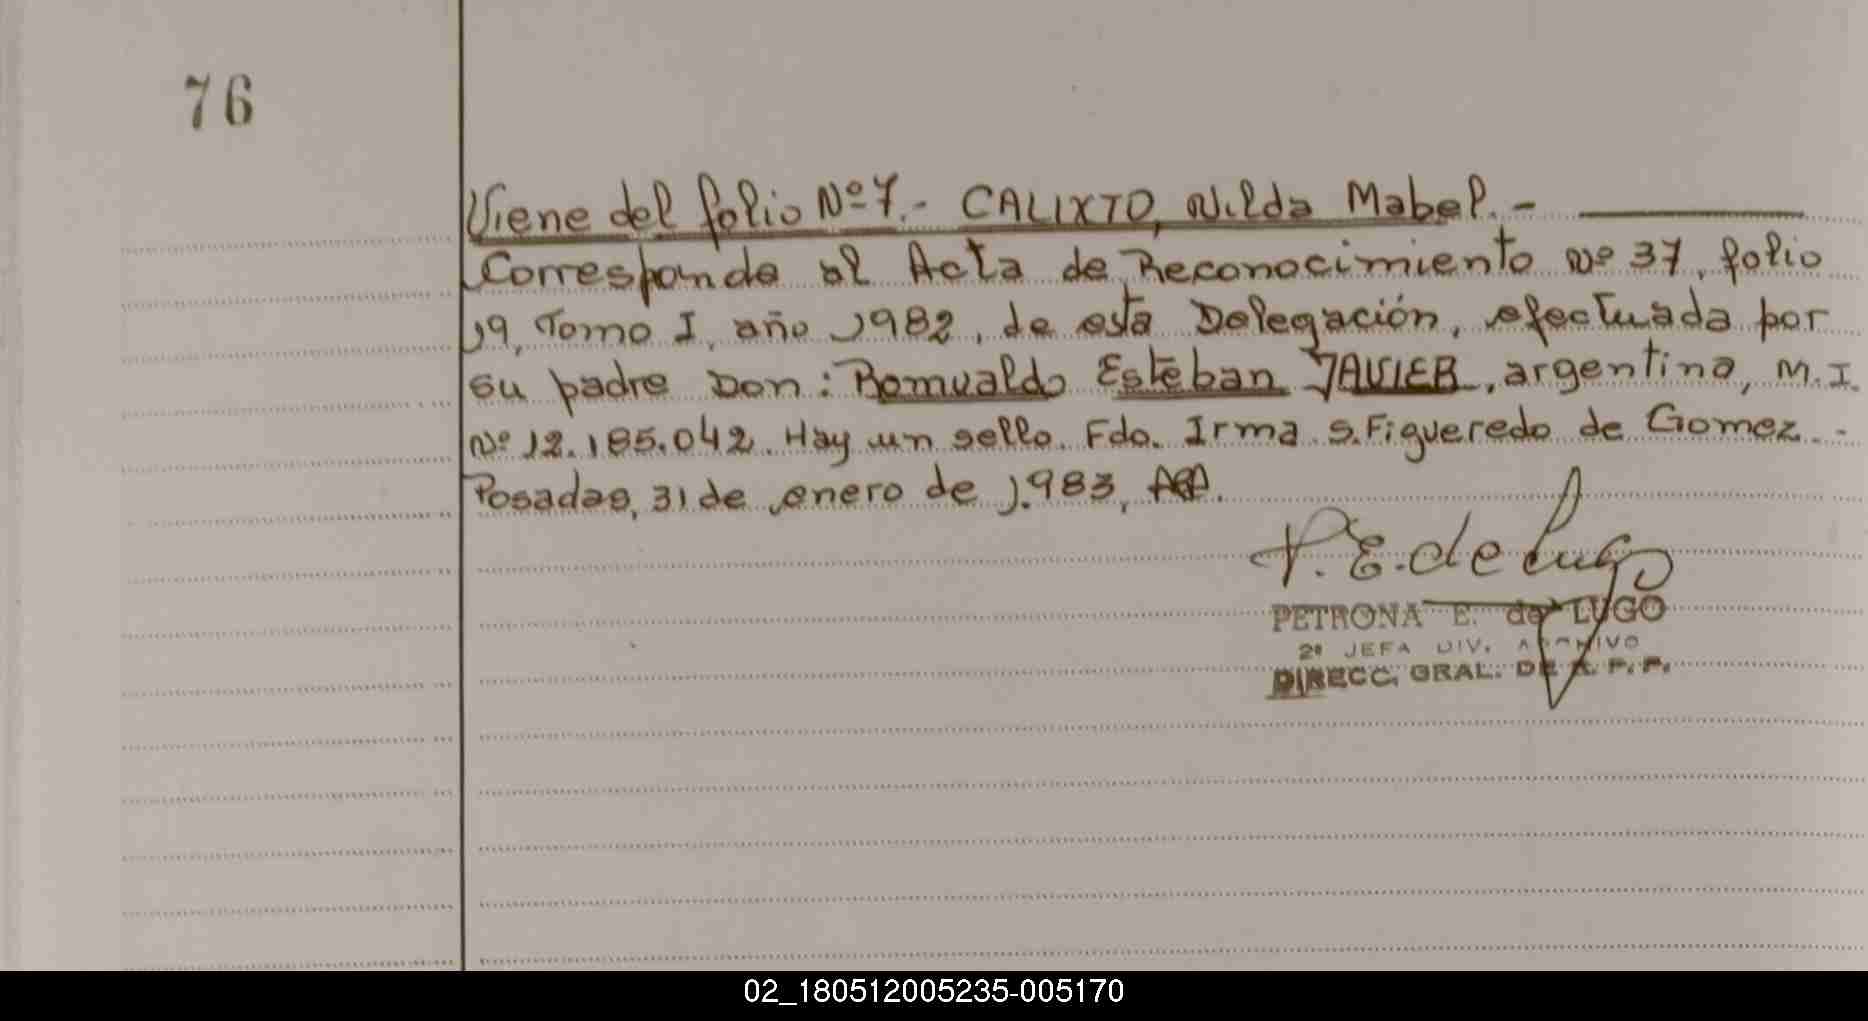 76
Viene del folio Nº 7.- CALIXTO, Nilda Mabel. -
Corresponde al Acta de Reconocimiento Nº 37, folio
19, Tomo I, año 1982, de esta Delegación, efectuada por
su padre Don: Romualdo Estéban JAVIER, argentino, M.I.
Nº 12.185.042. Hay un sello. Fdo. Irma S. Figueredo de Gomez.-
Posadas, 31 de enero de 1.983,
P. E. de Lugo
PETRONA E. de LUGO
2º JEFA DIV. ARCHIVO
DIRECC. GRAL. DE R. P. P.
02_180512005235-005170